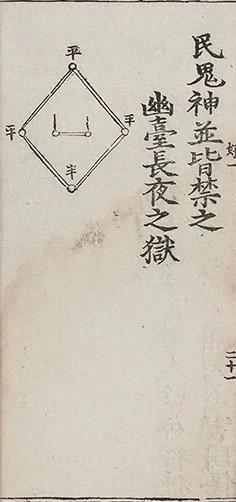 民鬼神並皆禁之
幽臺長夜之獄
平
平
平
半
二十一